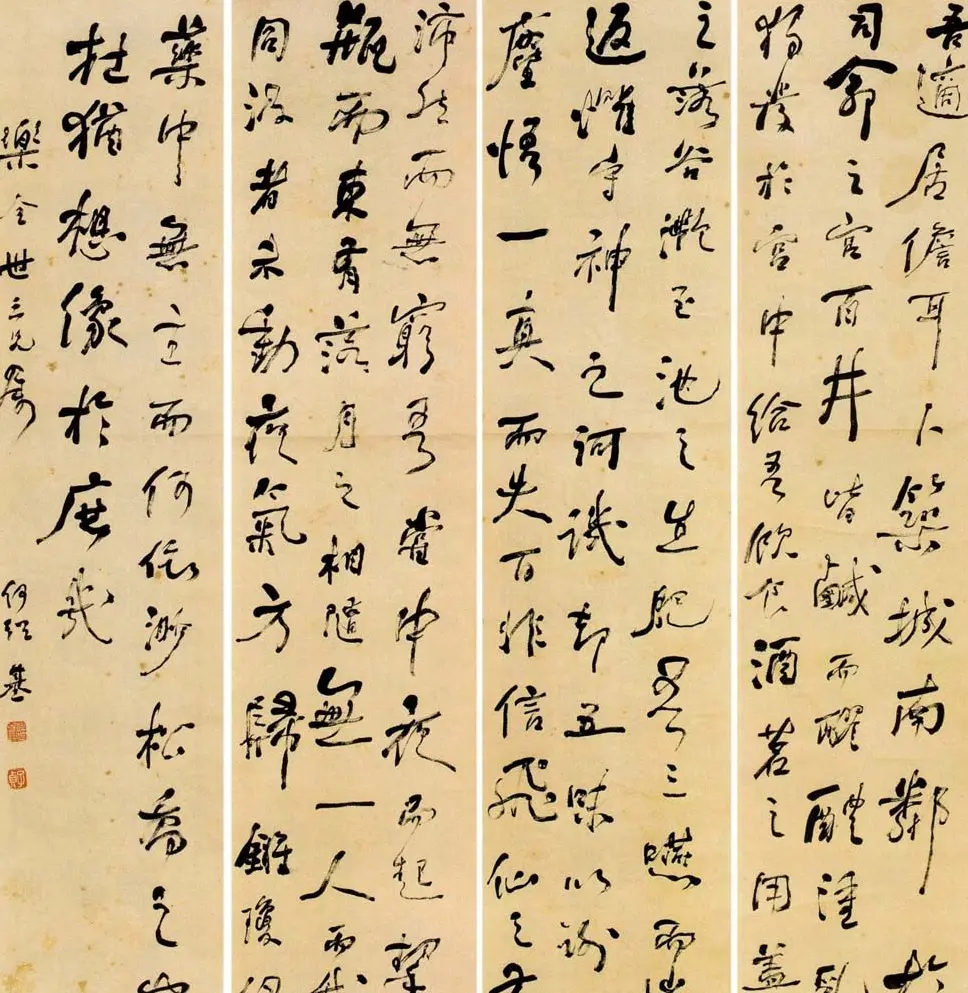 吾適居儋耳卜築城南鄰於
司命之宮百井皆鹹而醪醴湩乳
獨發於宮中給吾飲食酒茗之用蓋
之落谷灩玉池之生肥吾三嚥而
返懼守神之訶譏却五味以謝
塵悟一真而失百非信飛仙之有
沛然而無窮吾嘗中夜而起挈
瓶而東有落月之相隨無一人而我
同汲者未動夜氣方歸鏘瓊佩
藥中無主而何依渺松喬之安
在猶想像於庶幾
樂全世三兄屬 何紹基